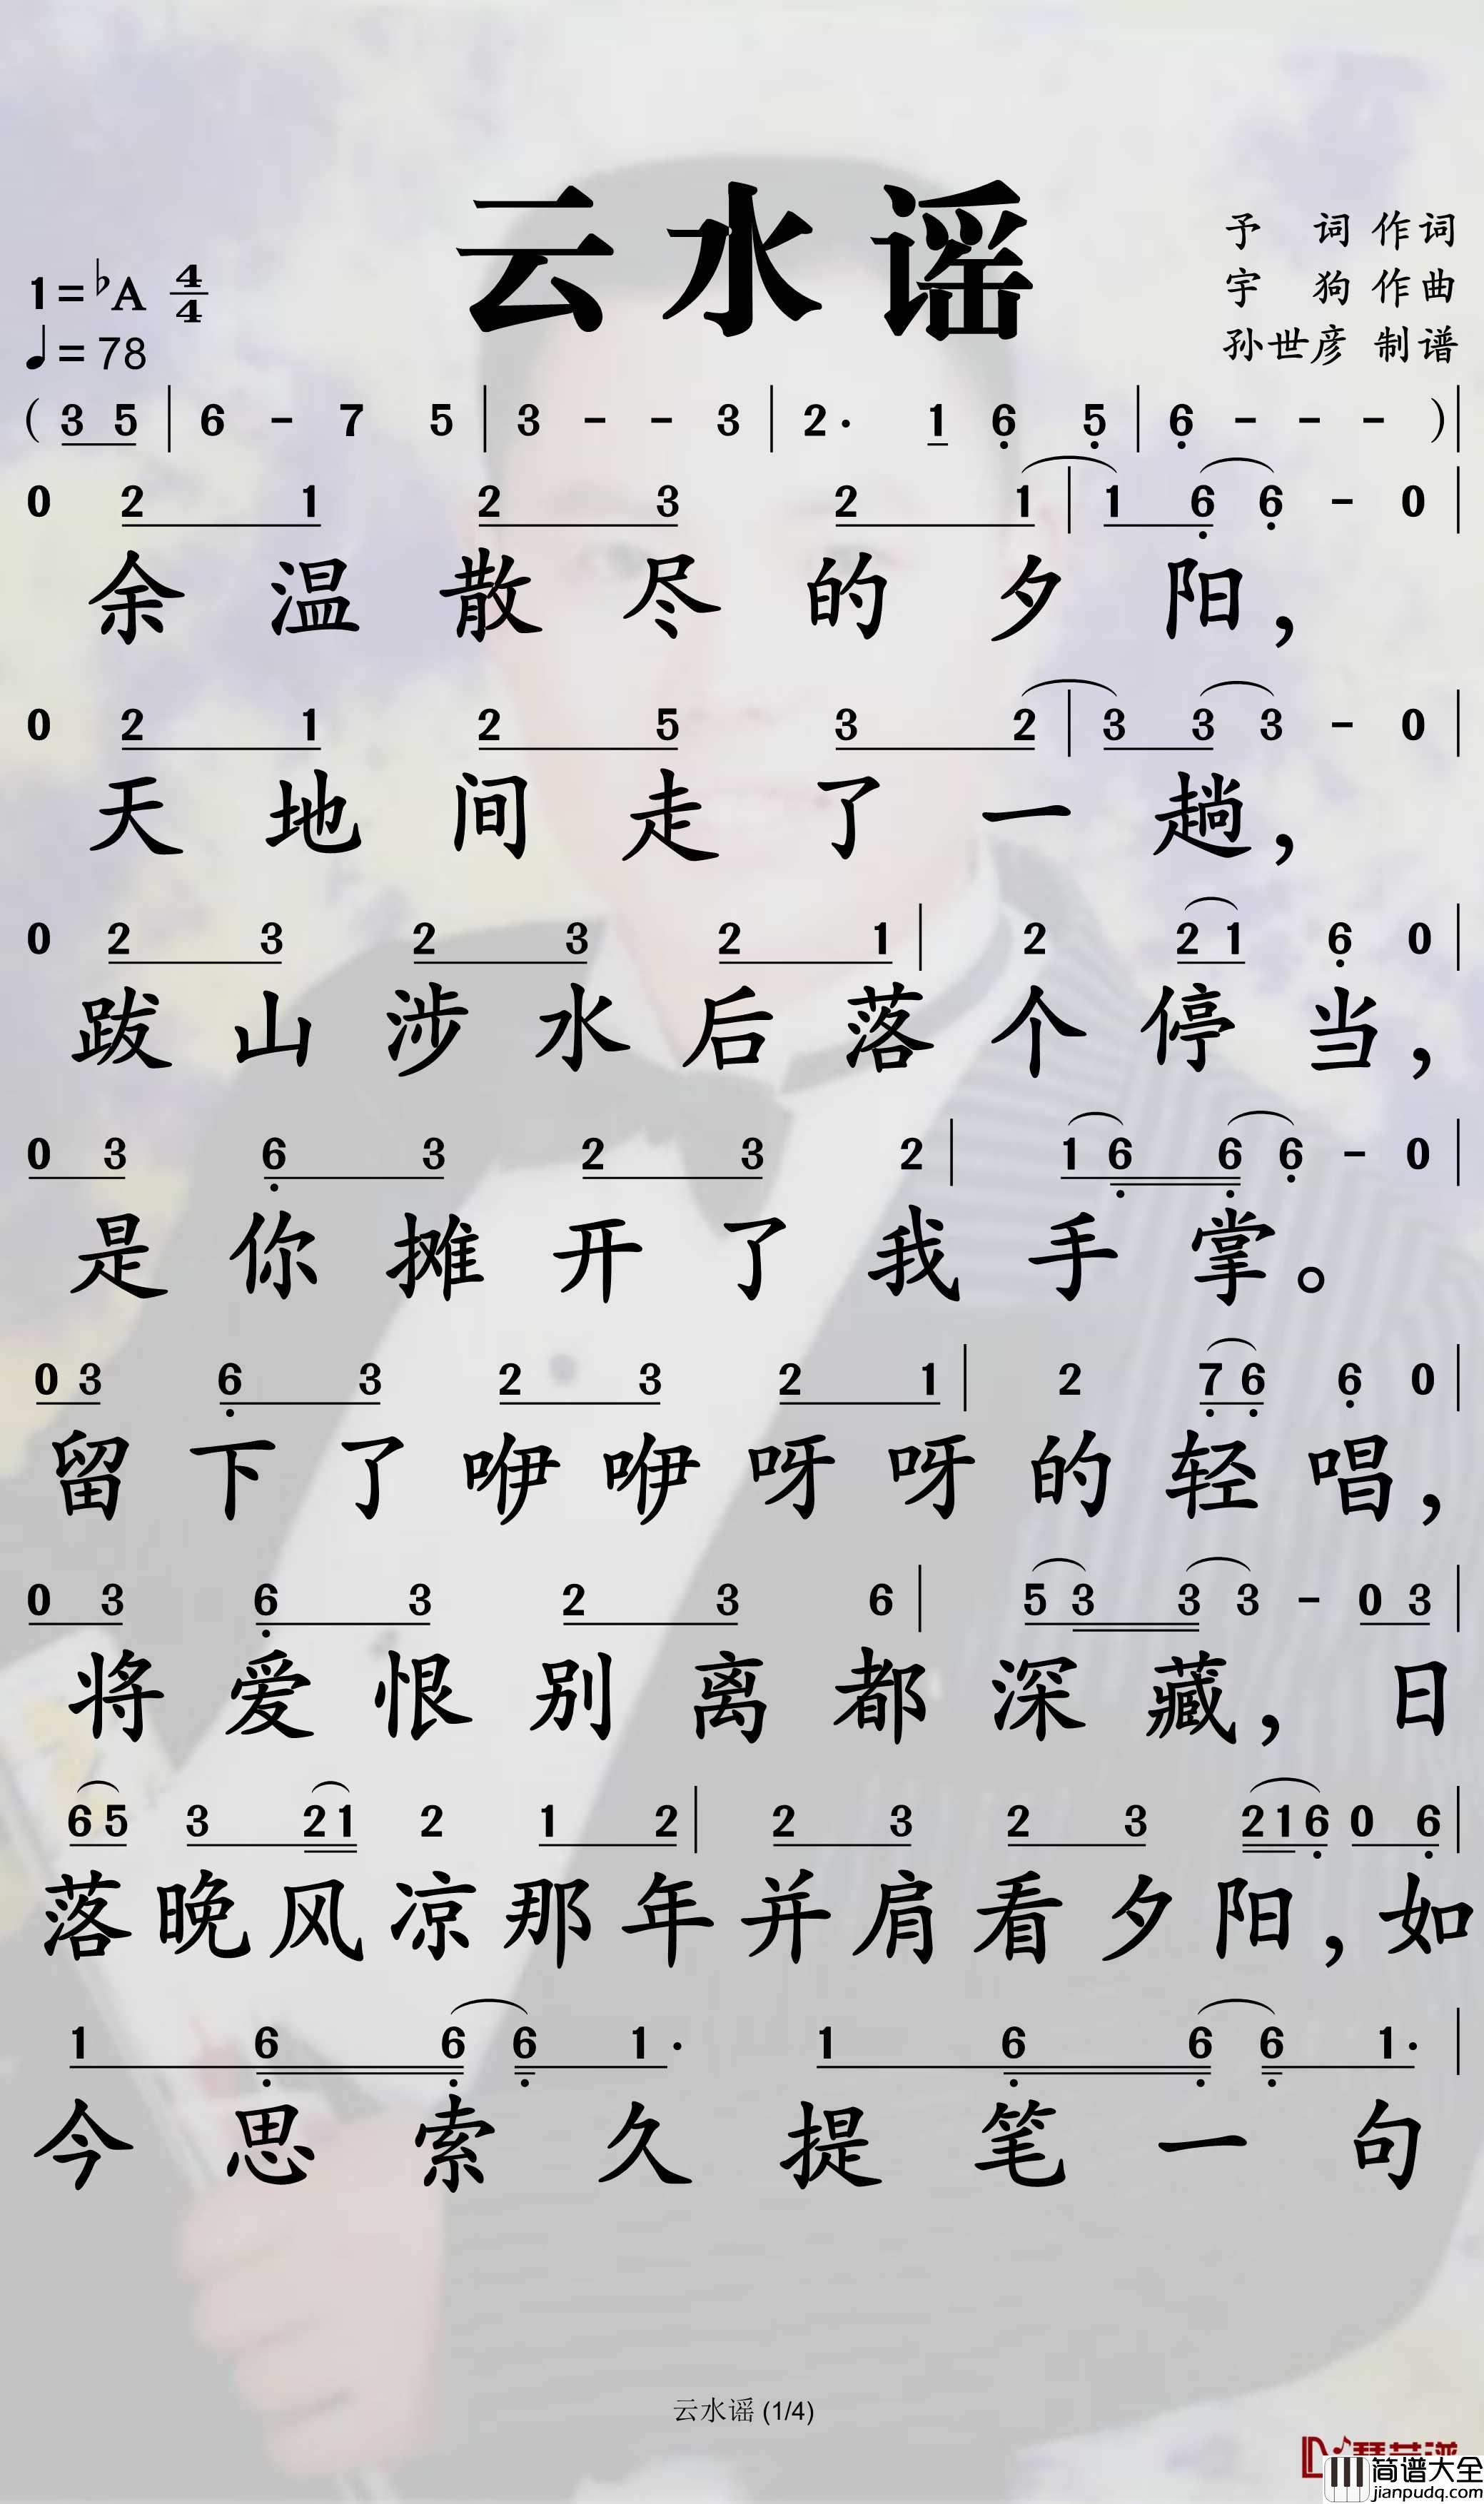 云水谣
予 词 作词
宇 狗 作曲
孙世彦 制谱
1=♭A 4/4
♩=78
( 3 5 | 6 - 7 5 | 3 - - 3 | 2· 1 6 5 | 6 - - - ) |
0 2 1 2 3 2 1 | 1 6 6 - 0 |
余温散尽的夕阳，
0 2 1 2 5 3 2 | 3 3 3 - 0 |
天地间走了一趟，
0 2 3 2 3 2 1 | 2 2 1 6 0 |
跋山涉水后落个停当，
0 3 6 3 2 3 2 | 1 6 6 6 - 0 |
是你摊开了我手掌。
0 3 6 3 2 3 2 1 | 2 7 6 6 0 |
留下了咿咿呀呀的轻唱，
0 3 6 3 2 3 6 | 5 3 3 3 - 0 3 |
将爱恨别离都深藏，日
6 5 3 2 1 2 1 2 | 2 3 2 3 2 1 6 0 6 |
落晚风凉那年并肩看夕阳，如
1 6 6 6 1· 1 6 6 6 1· |
今思索久提笔一句
云水谣 (1/4)
简谱大全
jianpudq.com